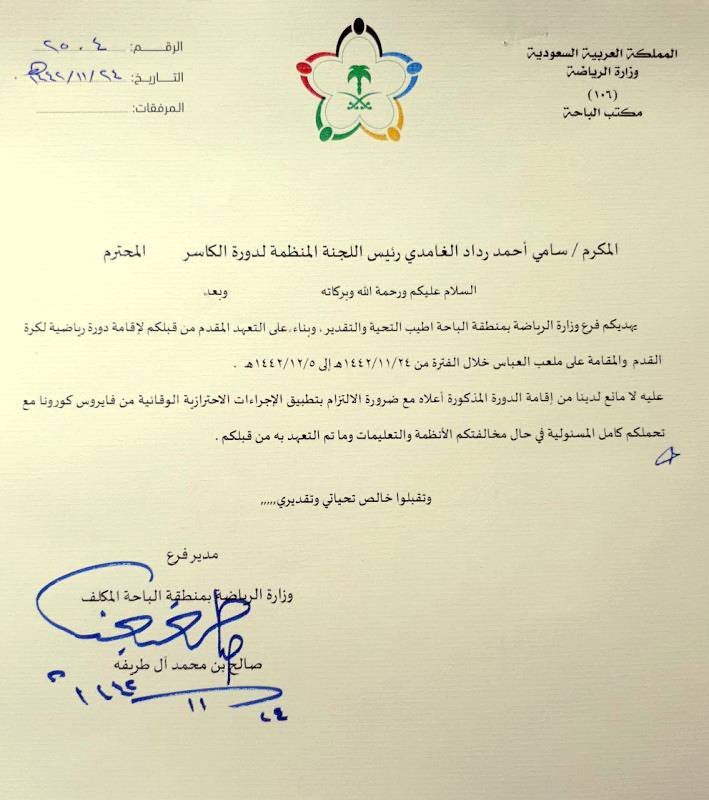 المملكة العربية السعودية
وزارة الرياضة
(١٠٦)
مكتب الباحة
الرقـــم: ٢٥٠٤
التـاريـخ: ١٤٤٢/١١/٢٤هـ
المرفقات:
المكرم / سامي أحمد رداد الغامدي رئيس اللجنة المنظمة لدورة الكاسر المحترم
السلام عليكم ورحمة الله وبركاته وبعد
يهديكم فرع وزارة الرياضة بمنطقة الباحة اطيب التحية والتقدير ، وبناء على التعهد المقدم من قبلكم لإقامة دورة رياضية لكرة
القدم والمقامة على ملعب العباس خلال الفترة من ١٤٤٢/١١/٢٤هـ إلى ١٤٤٢/١٢/٥هـ .
عليه لا مانع لدينا من إقامة الدورة المذكورة أعلاه مع ضرورة الالتزام بتطبيق الإجراءات الاحترازية الوقائية من فايروس كورونا مع
تحملكم كامل المسئولية في حال مخالفتكم الأنظمة والتعليمات وما تم التعهد به من قبلكم .
وتقبلوا خالص تحياتي وتقديري،،،،،
مدير فرع
وزارة الرياضة بمنطقة الباحة المكلف
صالح بن محمد آل طريفه